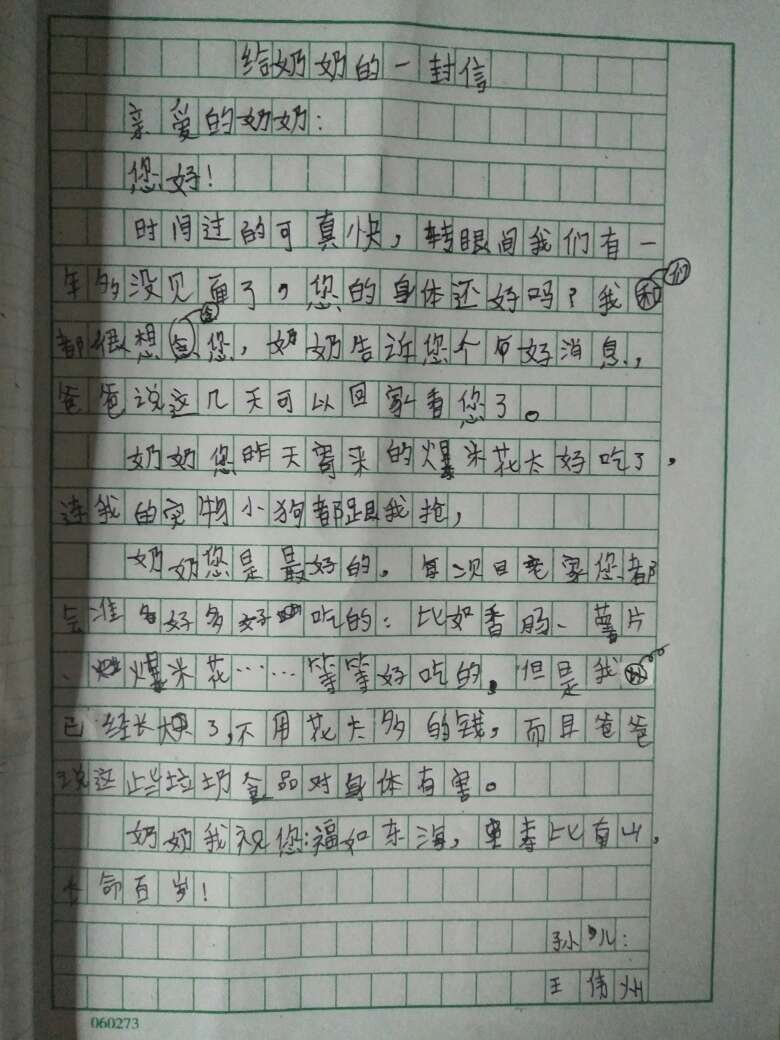 给奶奶的一封信
亲爱的奶奶:
您好!
时间过的可真快,转眼间我们有一
年多没见面了,您的身体还好吗?我们
都很想念您,奶奶告诉您个好消息,
爸爸说这几天可以回家看您了。
奶奶您昨天寄来的爆米花太好吃了,
连我的宠物小狗都跟我抢,
奶奶您是最好的。每次回老家您都
会准多好多好吃的:比如香肠、薯片
、爆米花……等等好吃的。但是我
已经长大了,不用花太多的钱,而且爸爸
说这些垃圾食品对身体有害。
奶奶我祝您:福如东海,寿比南山,
长命百岁!
孙儿:
王伟州
060273